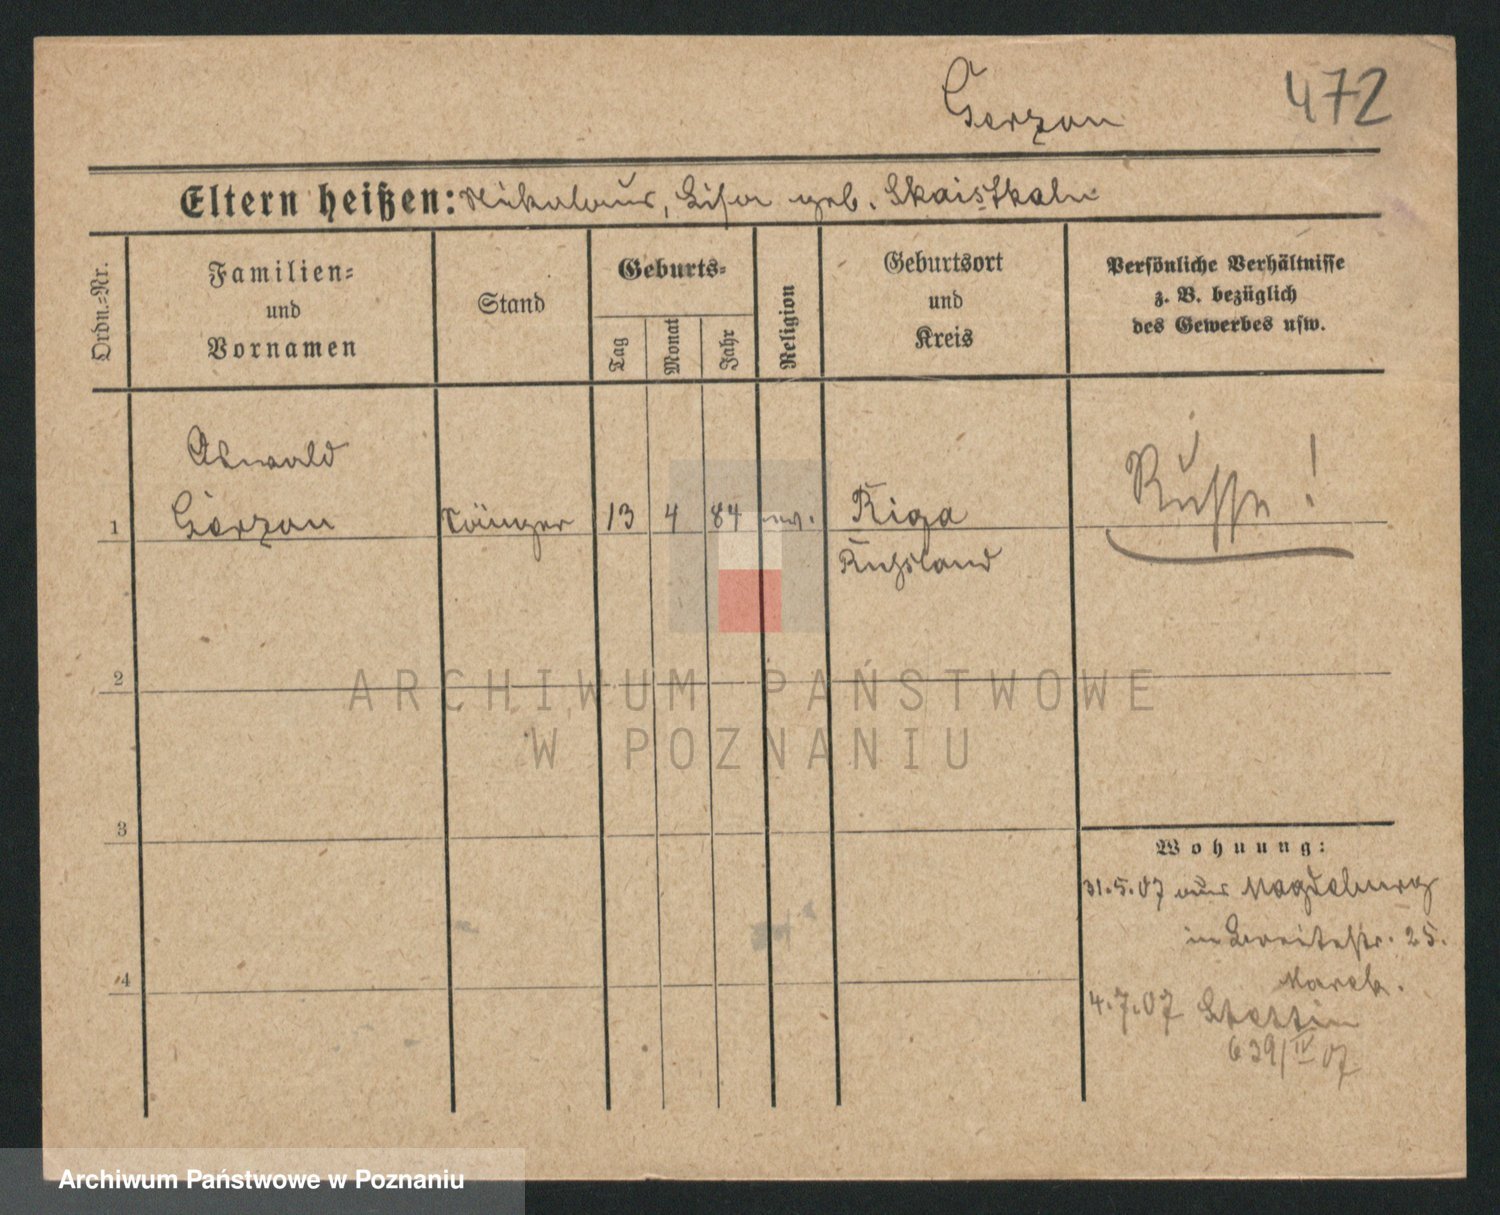 Gerzon
472
Eltern heißen: Nikolaus, Lisa geb. Skaistkaln
Ordn.=Nr.
Familien=
und
Vornamen
Stand
Geburts=
Tag
Monat
Jahr
Religion
Geburtsort
und
Kreis
Persönliche Verhältnisse
z. B. bezüglich
des Gewerbes usw.
Oswald
1 Gerzon Sänger 13 4 84 ev. Riga Russe!
Rußland
2
3
4
Wohnung:
31.5.07 aus Magdeburg
in Breitestr. 25.
4.7.07 Stettin
639/IV 07
ARCHIWUM PAŃSTWOWE
W POZNANIU
Archiwum Państwowe w Poznaniu